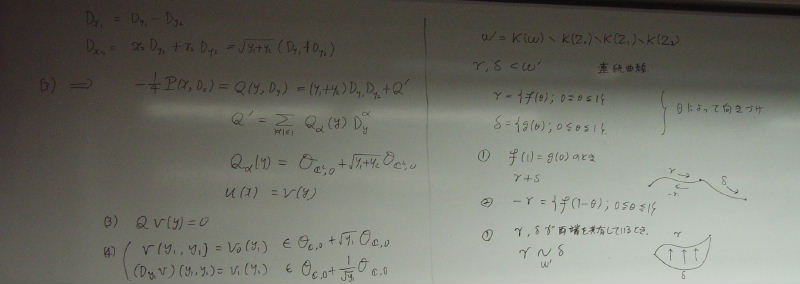 Dx₁ = Dy₁ - Dy₂
Dx₂ = x₂Dy₁ + x₂Dy₂ = √y₁+y₂ (Dy₁+Dy₂)
⟹ -1/4 P(x, Dx) = Q(y, Dy) = (y₁+y₂) Dy₁Dy₂ + Q'
Q' = Σ|α|≤1 Qα(y) Dy^α
Qα(y) = 𝒪ℂ²,0 + √y₁+y₂ 𝒪ℂ²,0
u(x) = v(y)
(3) Q v(y) = 0
(4) { v(y₁, y₁) = v₀(y₁) ∈ 𝒪ℂ,0 + √y₁ 𝒪ℂ,0
(Dy₁v)(y₁, y₁) = v₁(y₁) ∈ 𝒪ℂ,0 + 1/√y₁ 𝒪ℂ,0
w' = K(w) \ K(Z₀) \ K(Z₁) \ K(Z₂)
γ, δ ⊂ w' 連続曲線
γ = {f(θ); 0≦θ≦1}
δ = {g(θ); 0≦θ≦1}
θによって向きづけ
① f(1) = g(0) のとき
γ + δ
γ
-γ
δ
② -γ = {f(1-θ); 0≦θ≦1}
③ γ, δ が両端を共有しているとき.
γ ~w' δ
γ
δ